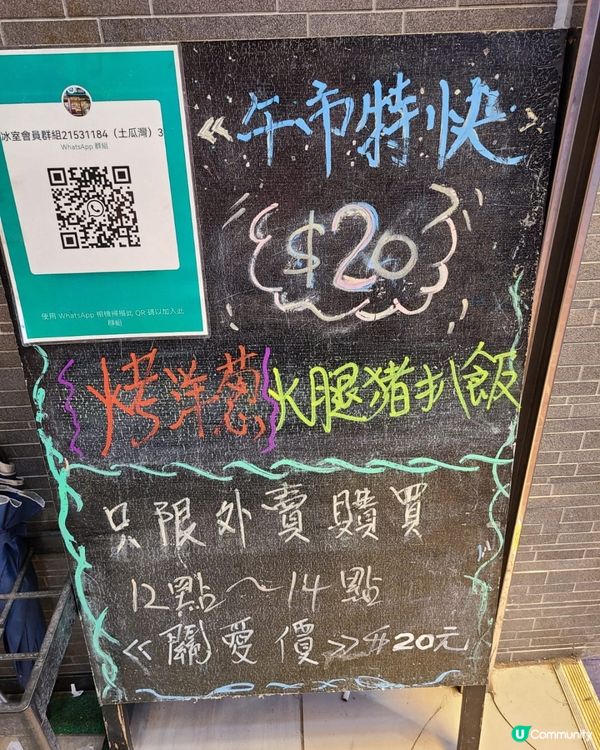 冰室會員群組21531184（土瓜灣）3
WhatsApp 群組
使用 WhatsApp 相機掃描此 QR 碼以加入此
群組
《午市特快》
$20
烤洋葱火腿猪扒飯
只限外賣購買
12點～14點
《關愛價》$20元
U Community